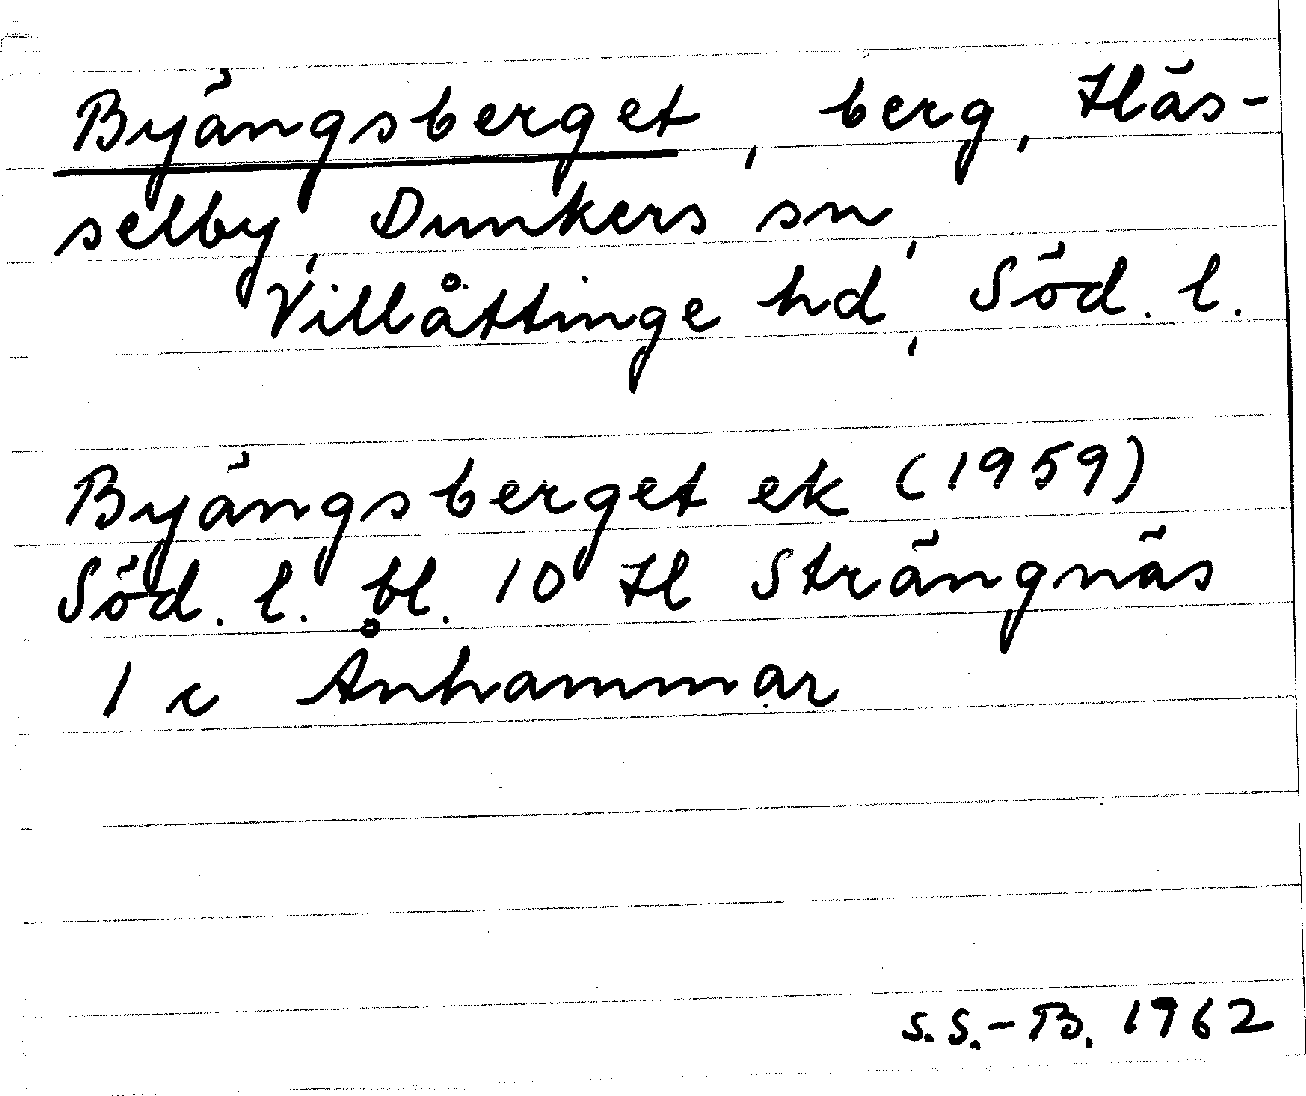 Byängsberget, berg, Häs-
selby, Dunkers sn,
Villåttinge hd, Söd. l.
Byängsberget ek (1959)
Söd. l. bl. 10 H Strängnäs
1 c Ånhammar
S.S.-B. 1962